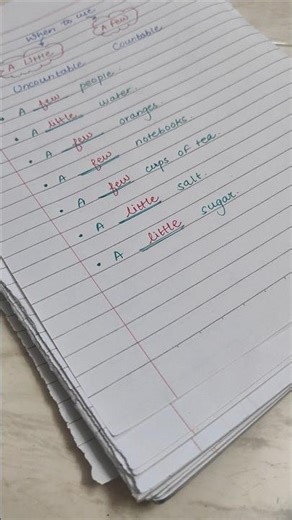 When to use
A little A few
Uncountable Countable
• A few people.
• A little water.
• A few oranges.
• A few notebooks.
• A few cups of tea.
• A little salt.
• A little sugar.